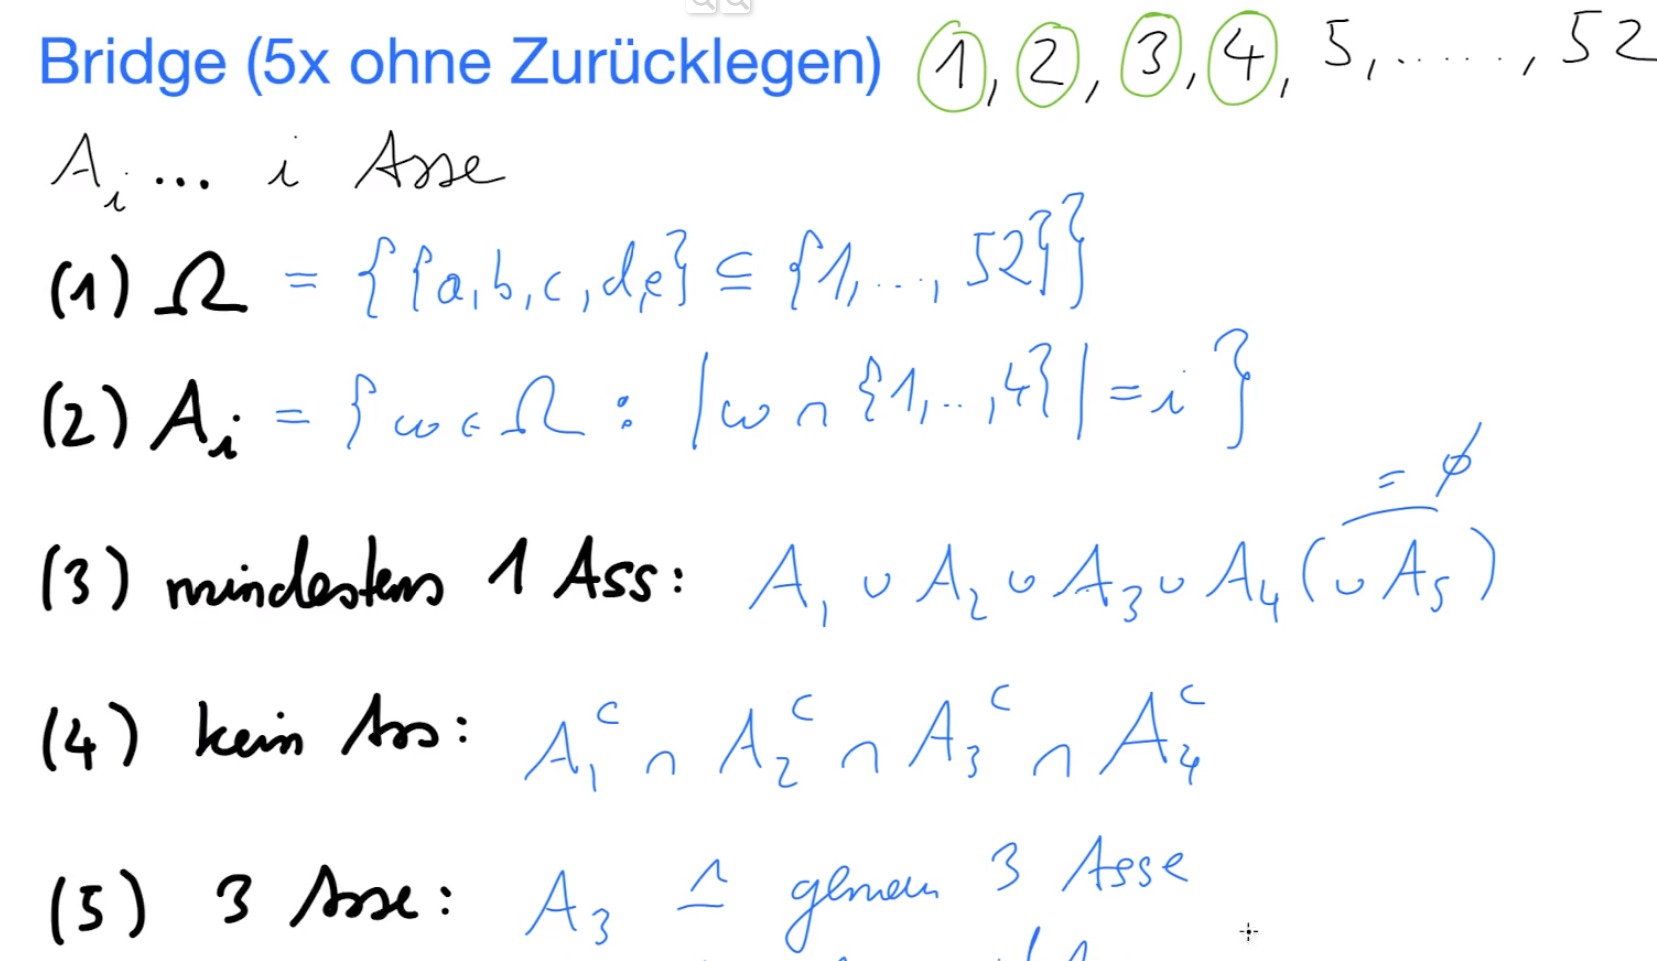 Bridge (5x ohne Zurücklegen) 1, 2, 3, 4, 5, ....., 52
A_i ... i Asse
(1) Ω = {{a,b,c,d,e} ⊆ {1,...,52}}
(2) A_i = {ω ∈ Ω : |ω ∩ {1,..,4}| = i}
= ∅
(3) mindestens 1 Ass: A_1 ∪ A_2 ∪ A_3 ∪ A_4 (∪ A_5)
(4) kein Ass: A_1^C ∩ A_2^C ∩ A_3^C ∩ A_4^C
(5) 3 Asse: A_3 ≙ genau 3 Asse